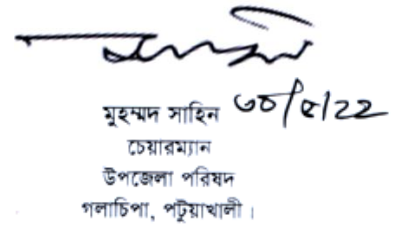 মুহম্মদ সাহিন ৩০/৫/২২
চেয়ারম্যান
উপজেলা পরিষদ
গলাচিপা, পটুয়াখালী।